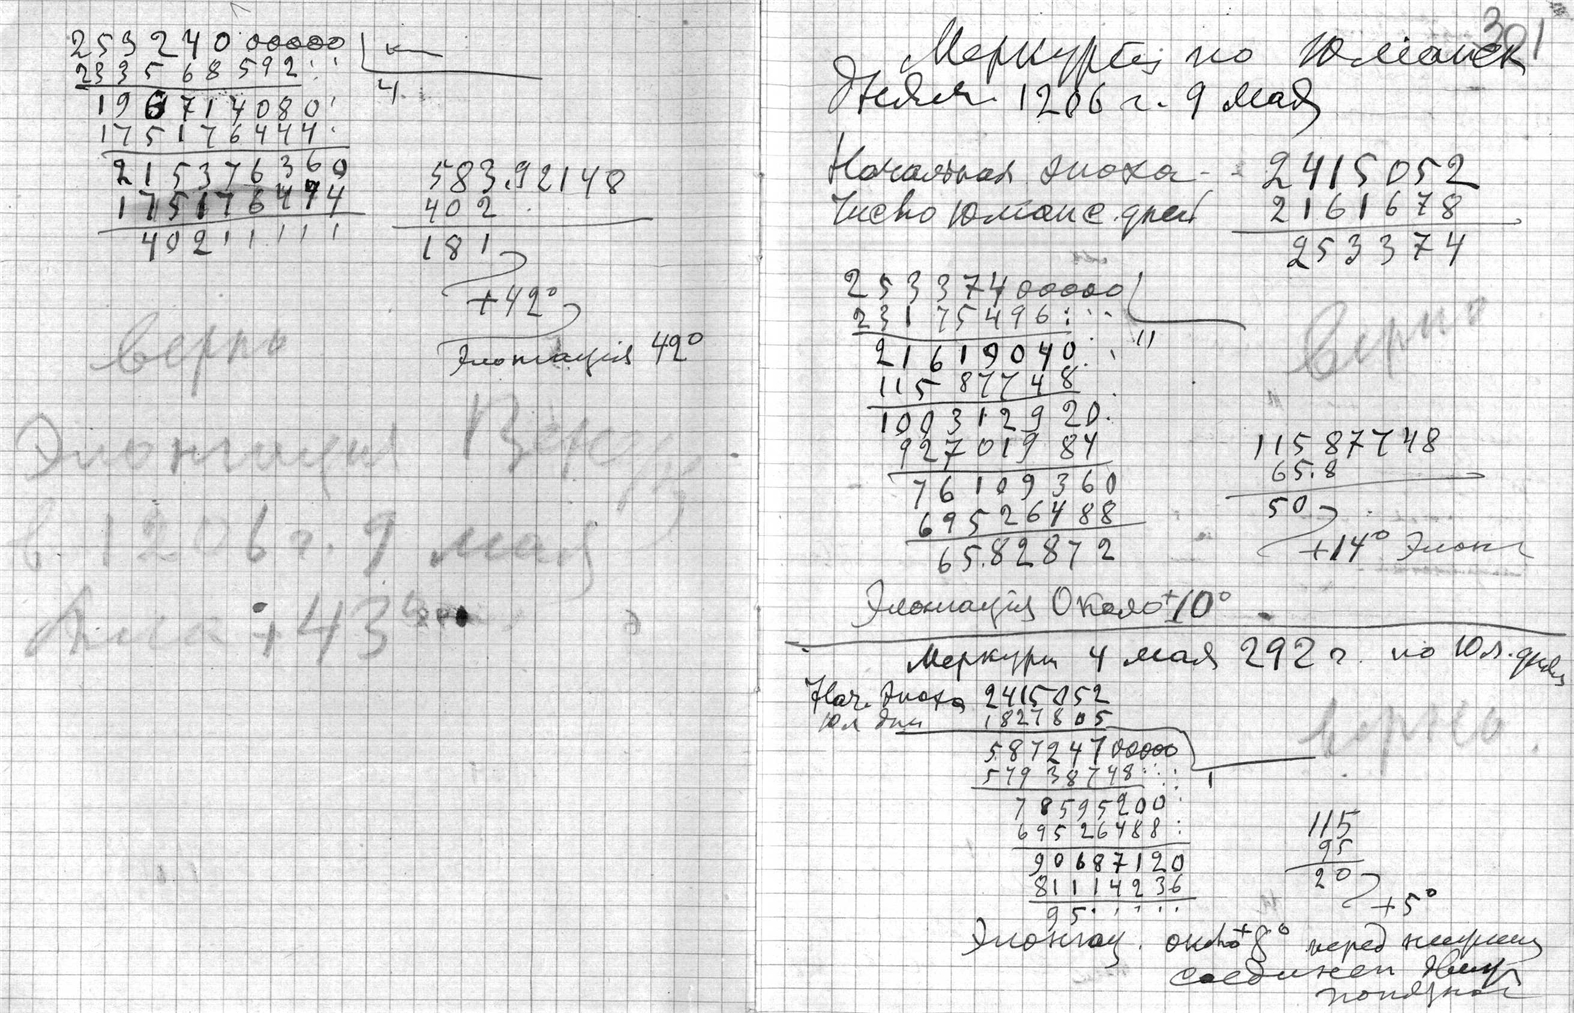 25324000000
233568592
196714080
175176444
215376360
175176444
40211111
4
583.92148
402
181
+42°
Элонгація 42°
верно
Элонгация
в 1206 г. 9 мая
+43
301
Меркурій по Юліанск
Дням. 1206 г. 9 мая
Начальная эпоха - 2415052
Число Юліанс. дней 2161678
253374
25337400000
23175496
21619040
11587748
100312920
92701984
76109360
69526488
65.82872
11
верно
11587748
65.8
50
+14° Элонг
Элонгація Около +10°
Меркурій 4 мая 292 г. по Юл. дням
Нач. Эпоха 2415052
Юл дни 1827805
58724700000
57938748
78595200
69526488
90687120
81114236
95
1
верно.
115
95
20
+5°
Элонгац. около +8° перед
соединен